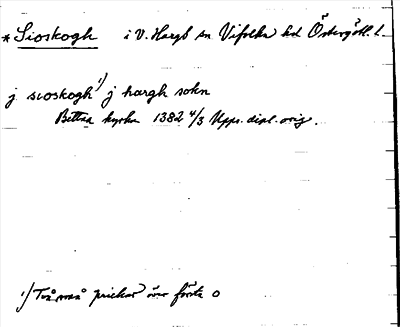 *Sioskogh i V. Hargs sn Vifolka hd Östergötl. l.
j sioskogh 1) j hargh sokn
Bettna kyrka 1382 4/3 Upps. dipl. orig.
1) Två små prickar över första o